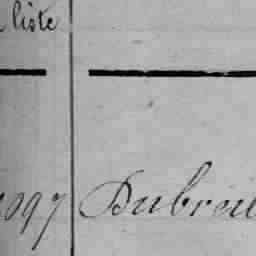 liste
1097 Dubreu